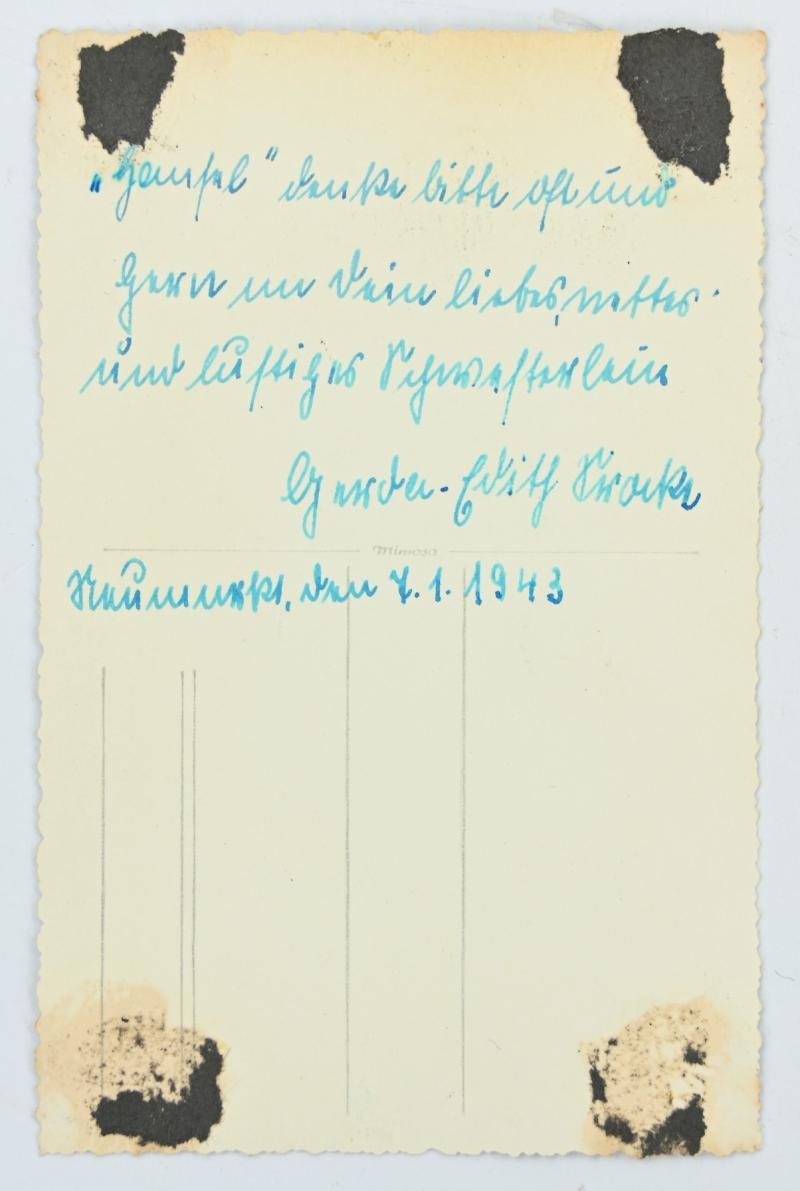 „Hansel" denke bitte oft und
gern an Dein liebes, nettes
und lustiges Schwesterlein
Gerda-Edith
Mimosa
Neumarkt, den 7.1.1943